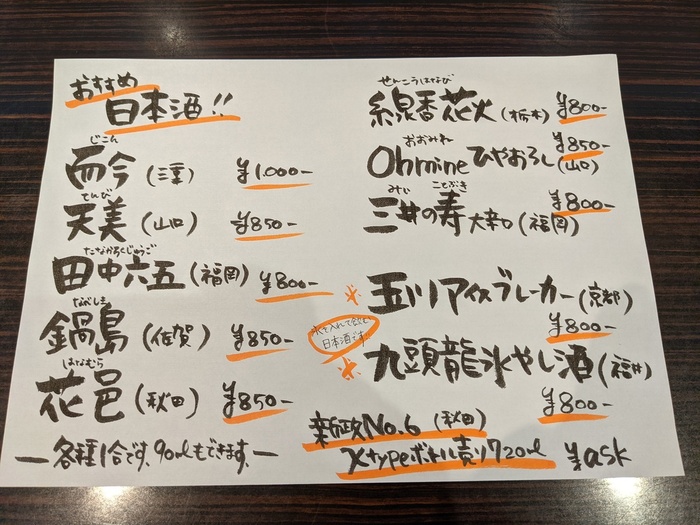 おすすめ
日本酒!!
じこん
而今 (三重) ¥1.000-
てんび
天美 (山口) ¥850-
たなかろくじゅうご
田中六五 (福岡) ¥800-
なべしま
鍋島 (佐賀) ¥850-
はなむら
花邑 (秋田) ¥850-
ー各種1合です、90mlもできます。ー
せんこうはなび
線香花火 (栃木) ¥800-
おおみね
Ohmine ひやおろし (山口) ¥850-
みい ことぶき
三井の寿 大辛口 (福岡) ¥800-
氷を入れて飲む
日本酒です
玉川アイスブレーカー (京都)
¥800-
九頭龍氷やし酒 (福井)
¥800-
新政No.6 (秋田)
Xtypeボトル売り720ml ¥ask